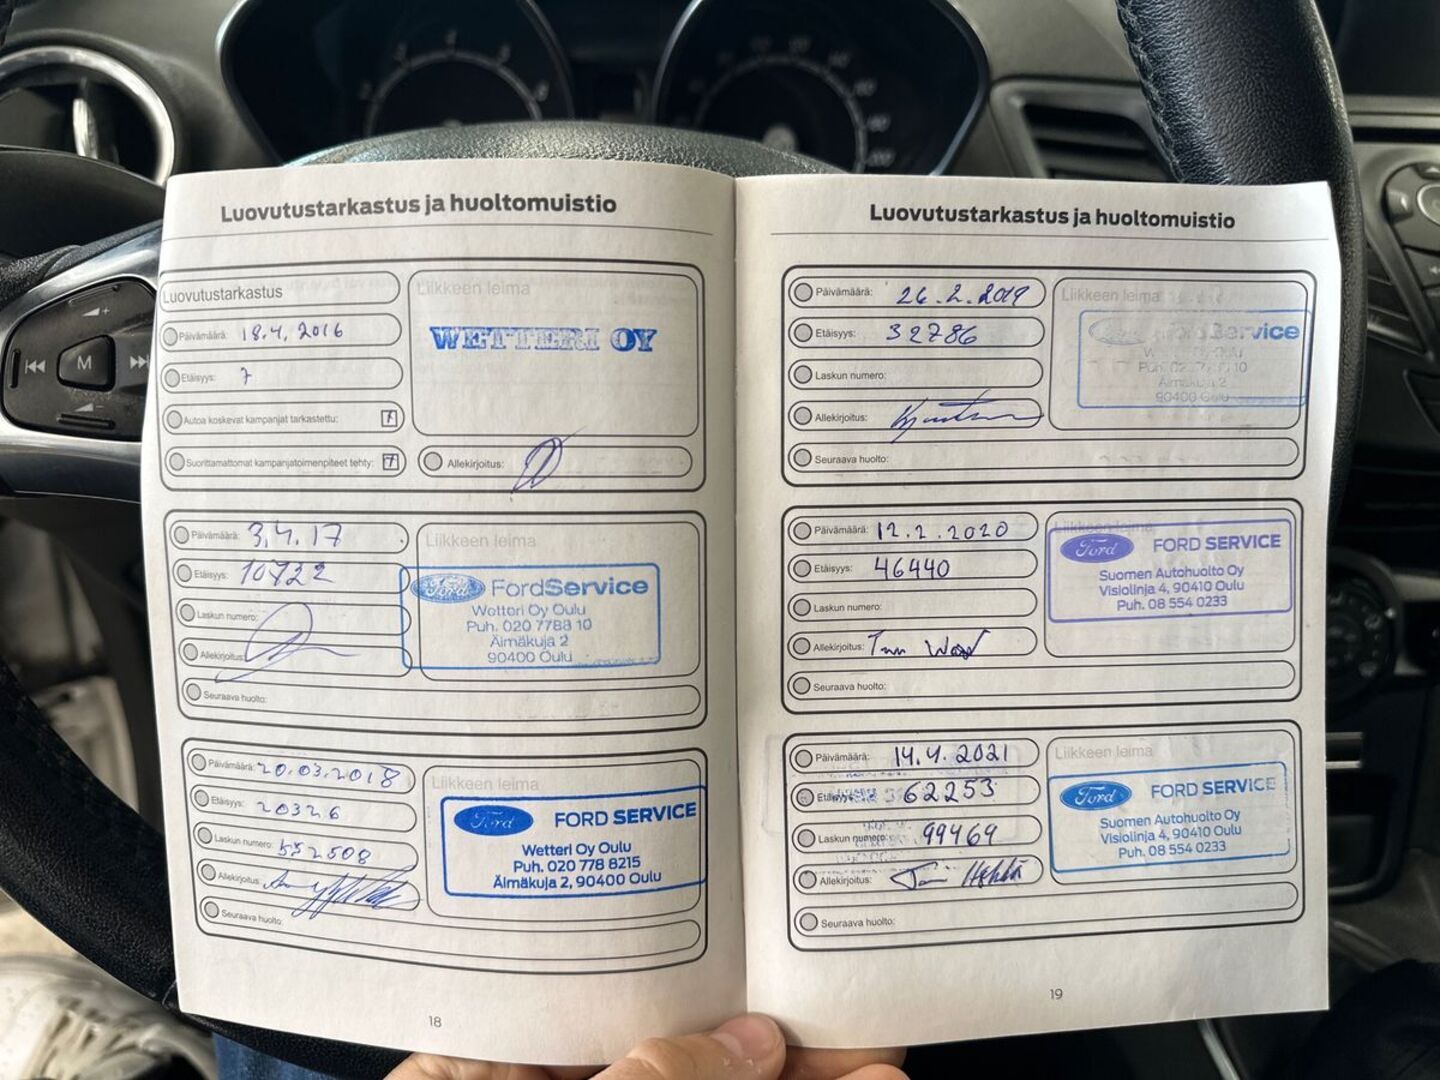 Luovutustarkastus ja huoltomuistio
Luovutustarkastus
Liikkeen leima
Päivämäärä: 18.4.2016
WETTERI OY
Etäisyys: 7
Autoa koskevat kampanjat tarkastettu:
Suorittamattomat kampanjatoimenpiteet tehty:
Allekirjoitus:
Päivämäärä: 3.4.17
Liikkeen leima
Etäisyys: 10722
Ford FordService
Wetteri Oy Oulu
Puh. 020 7788 10
Äimäkuja 2
90400 Oulu
Laskun numero:
Allekirjoitus:
Seuraava huolto:
Päivämäärä: 20.03.2018
Liikkeen leima
Etäisyys: 20326
Ford FORD SERVICE
Wetteri Oy Oulu
Puh. 020 778 8215
Äimäkuja 2, 90400 Oulu
Laskun numero: 552508
Allekirjoitus:
Seuraava huolto:
18
Luovutustarkastus ja huoltomuistio
Päivämäärä: 26.2.2019
Liikkeen leima
Etäisyys: 32786
FordService
Äimäkuja 2
90400 Oulu
Laskun numero:
Allekirjoitus:
Seuraava huolto:
Päivämäärä: 12.2.2020
Liikkeen leima
Etäisyys: 46440
Ford FORD SERVICE
Suomen Autohuolto Oy
Visiolinja 4, 90410 Oulu
Puh. 08 554 0233
Laskun numero:
Allekirjoitus:
Seuraava huolto:
Päivämäärä: 14.4.2021
Liikkeen leima
Etäisyys: 62253
Ford FORD SERVICE
Suomen Autohuolto Oy
Visiolinja 4, 90410 Oulu
Puh. 08 554 0233
Laskun numero: 99469
Allekirjoitus:
Seuraava huolto:
19
M